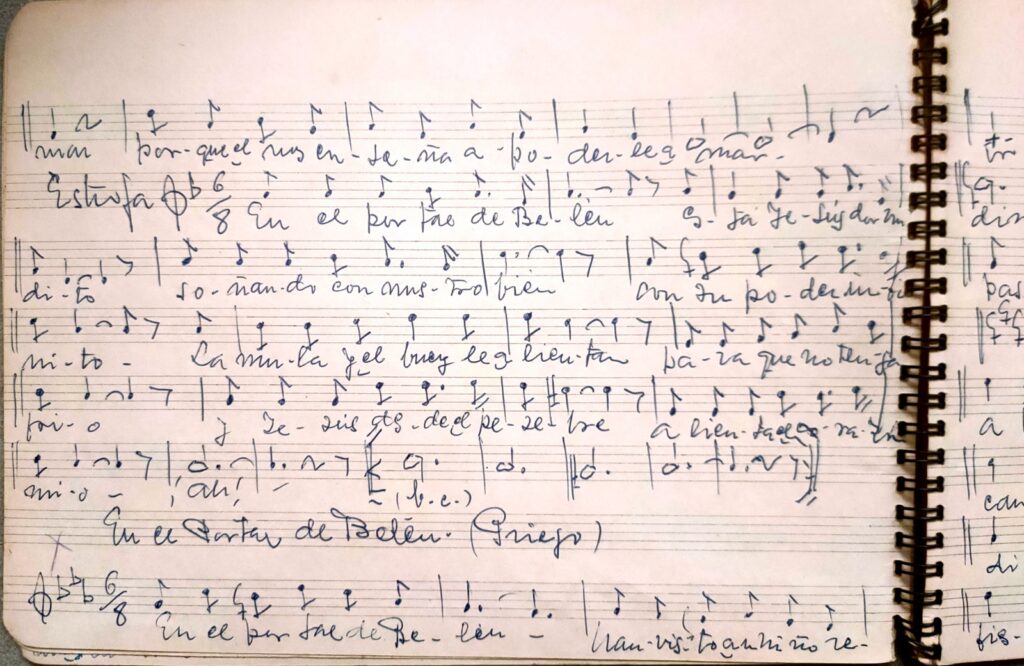 mar por-que el nos en-se-ña a po-der-le a mar.
Estrofa 6/8 En el por tal de Be-lén Es-ta Je-sús dor mi
di-to so-ñan-do con nues-tro bien con su po-der in-fi
ni-to- La mu-la y el buey le ca lien-tan pa-ra que no tenga
frí-o y Je-sús des-de el pe-se-bre a lien-ta el co-ra-zón
mí-o- ¡ah! - (b.c.)
En el Portal de Belén. (Priego)
6/8 En el por tal de Be-lén - han vis-to a un ni ño re-
di
a
di